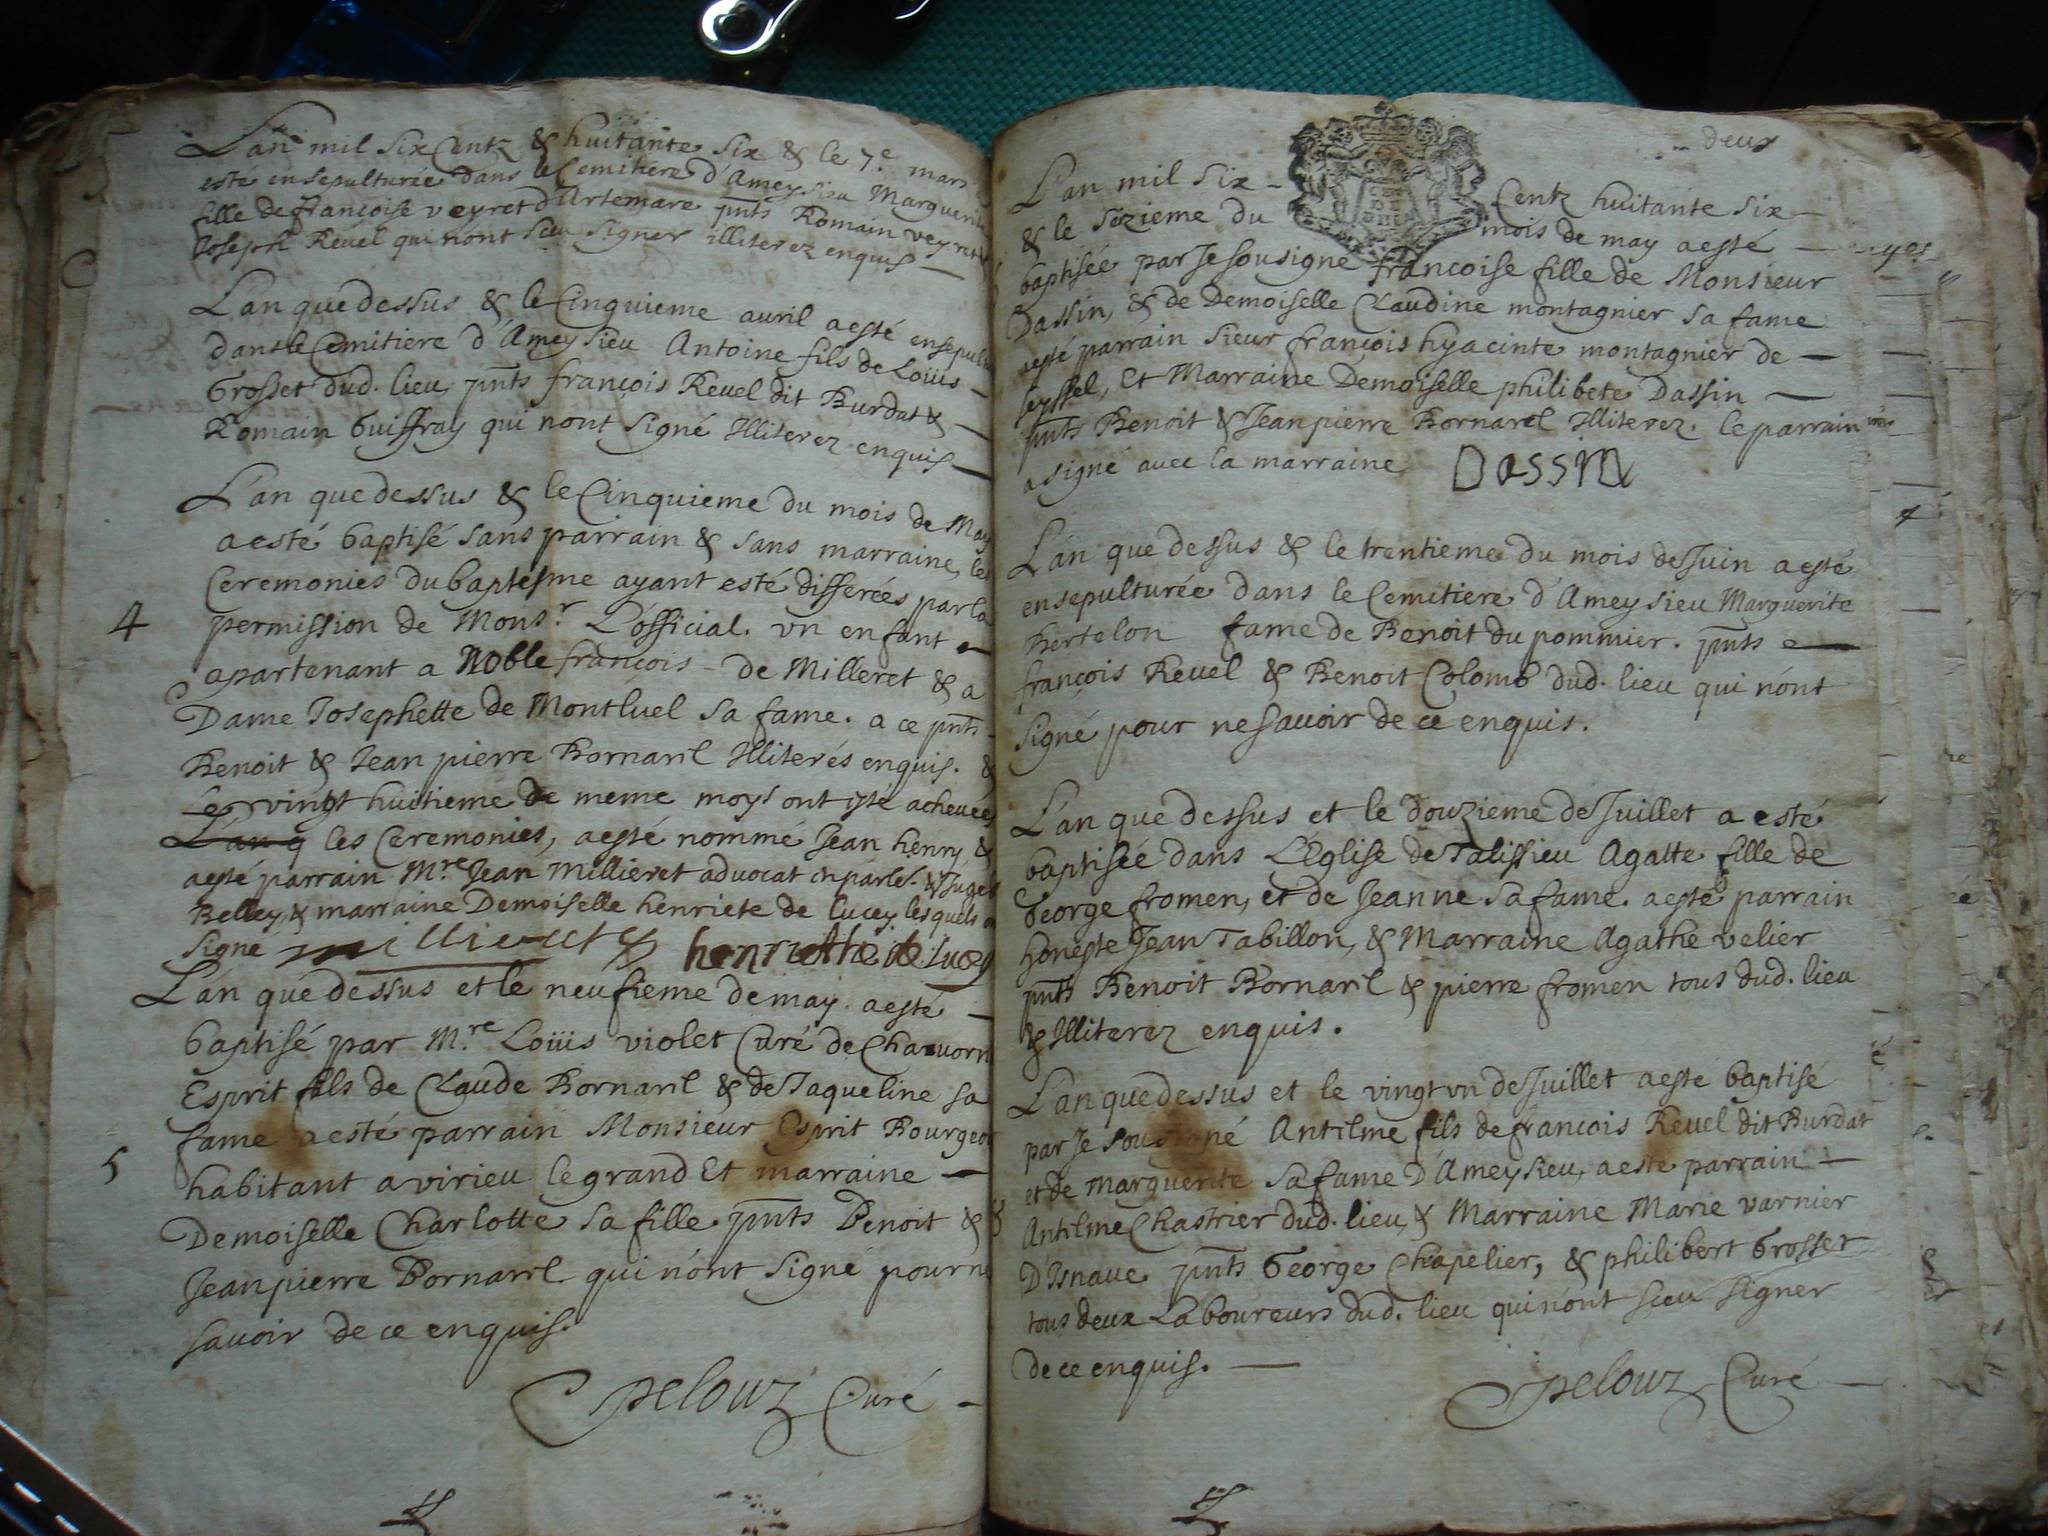 L'an mil six Centz & huitante six & le 7e. mars
esté ensepulturée dans le Cemitiere d'Ameysieu Marguerite
fille de françoise veyret d'Artemare pnts Romain veyret &
Joseph Revel qui n'ont sceu signer illiterez enquis
L'an que dessus & le Cinquieme auril a esté ensepul
dans le Cemitiere d'Ameysieu Antoine fils de Loüis
Grosset dud. lieu, pnts françois Reuel dit Burdat &
Romain Guiffray qui n'ont signé Illiterez enquis
L'an que dessus & le Cinquieme du mois de May
a esté baptisé sans parrain & sans marraine, les
Ceremonies du baptesme ayant esté differées par la
4 permission de Monsr. L'official. vn enfant
apartenant a Noble françois de Milleret & a
Dame Josephette de Montluel sa fame. a ce pnts
Benoit & Jean pierre Bornaril Illiterés enquis. &
Le vingt huitieme de meme moys ont esté acheuées
L'an q les Ceremonies, a esté nommé Jean henry, &
a esté parrain Mre. Jean Millieret aduocat en parle. & Juge
Belley, & marraine Demoiselle henriete de Lucey lesquels on
signé millieret henriette de lucey
L'an que dessus et le neufieme de may a esté
baptisé par Mre. Loüis violet Curé de Chauorn
Esprit fils de Claude Bornaril & de Jaqueline sa
fame a esté parrain Monsieur Esprit Bourgeo
5 habitant a virieu le grand Et marraine
Demoiselle Charlotte sa fille. pnts Benoit &
Jean pierre Bornaril qui n'ont signé pour n
sauoir de ce enquis.
pelouz Curé
deux
L'an mil six Centz huitante six
& le sezieme du mois de may a esté
baptisée par Je sousigné françoise fille de Monsieur
Dassin, & de Demoiselle Claudine montagnier sa fame
a esté parrain Sieur françois hyacinte montagnier de
seyssel, Et Marraine Demoiselle philibete Dassin
pnts Benoit & Jean pierre Bornaril Illiterez. le parrain
a signé auec la marraine Dassin
L'an que dessus & le trentieme du mois de Juin a esté
ensepulturée dans le Cemitiere d'Ameysieu Marguerite
Bertelon fame de Benoit du pommier. pnts
françois Reuel & Benoit Colomb dud. lieu qui n'ont
signé pour ne sauoir de ce enquis.
L'an que dessus et le douzieme de Juillet a esté
baptisée dans L'Eglise de Talissieu Agatte fille de
George fromen, et de Jeanne sa fame. a esté parrain
honeste Jean Tabillon, & Marraine Agathe velier
pnts Benoit Bornaril & pierre fromen tous dud. lieu
& Illiterez enquis.
L'an que dessus et le vingt vn de Juillet a esté baptisé
par Je sousigné Antelme fils de françois Reuel dit Burdat
et de Marguerite sa fame D'Ameysieu, a esté parrain
Antelme Chastrier dud. lieu, & Marraine Marie varnier
D'Isnaue pnts George Chapelier, & philibert Grosset
tous deux Laboureurs dud. lieu qui n'ont sceu signer
de ce enquis.
pelouz Curé